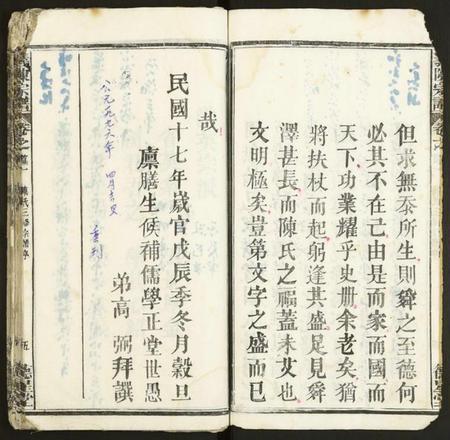 但求無忝所生則舜之至德何
必其不在己由是而家而國而
天下功業耀乎史冊余老矣猶
將扶杖而起躬逢其盛足見舜
澤甚長而陳氏之福蓋未艾也
文明極矣豈第文字之盛而已
哉
民國十七年歲官戊辰季冬月穀旦
廩膳生候補儒學正堂世愚
弟高弼拜譔
公元一九九六年
四月
重刊
陳宗譜
卷之一
五